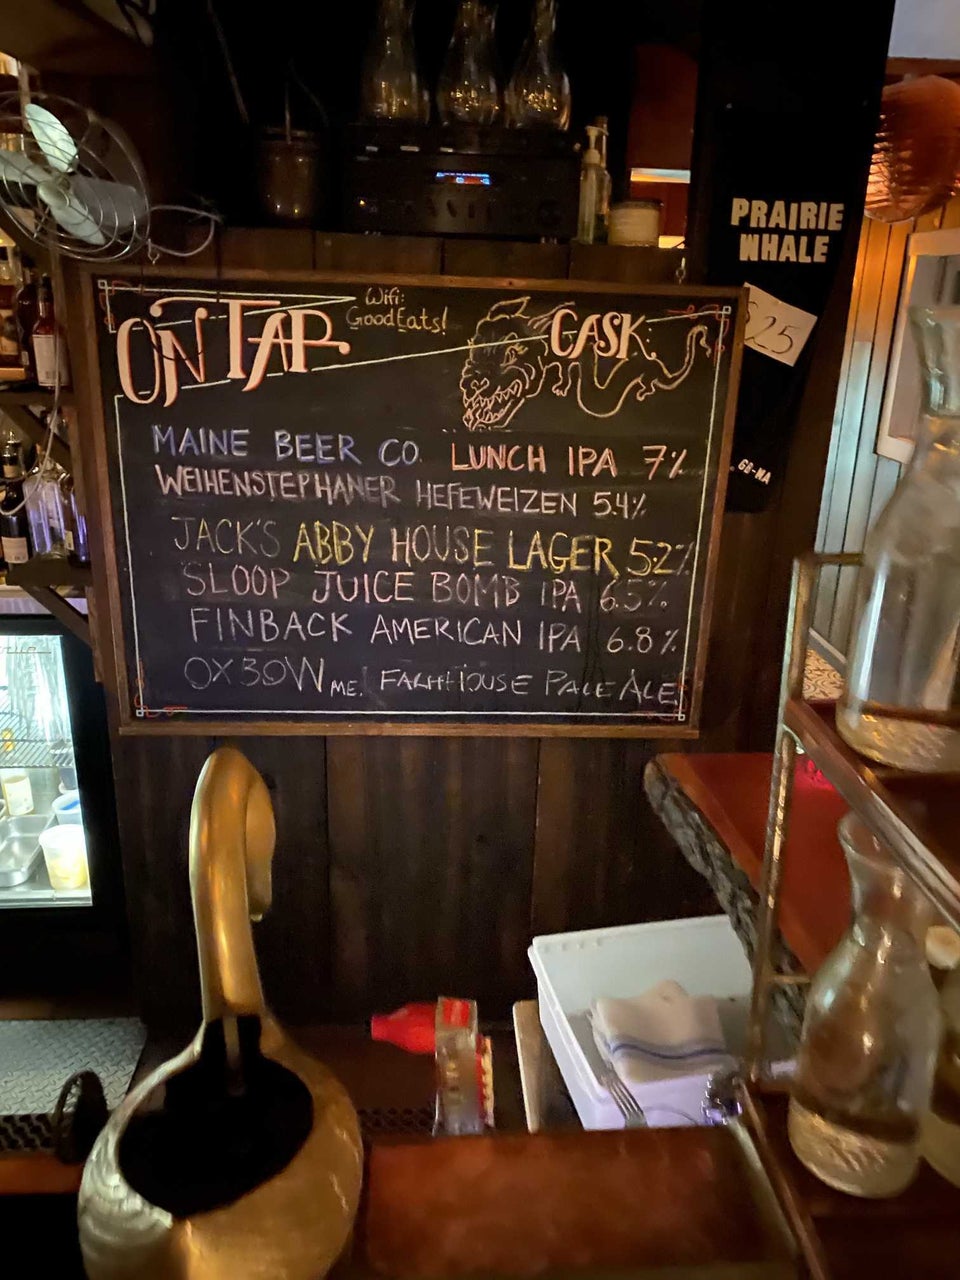 PRAIRIE
WHALE
ON TAP
Wifi:
GoodEats!
CASK:
$25
MAINE BEER CO. LUNCH IPA 7%
WEIHENSTEPHANER HEFEWEIZEN 5.4%
GB-MA
JACK'S ABBY HOUSE LAGER 5.2%
SLOOP JUICE BOMB IPA 6.5%
FINBACK AMERICAN IPA 6.8%
OXBOW ME. FARMHOUSE PALE ALE